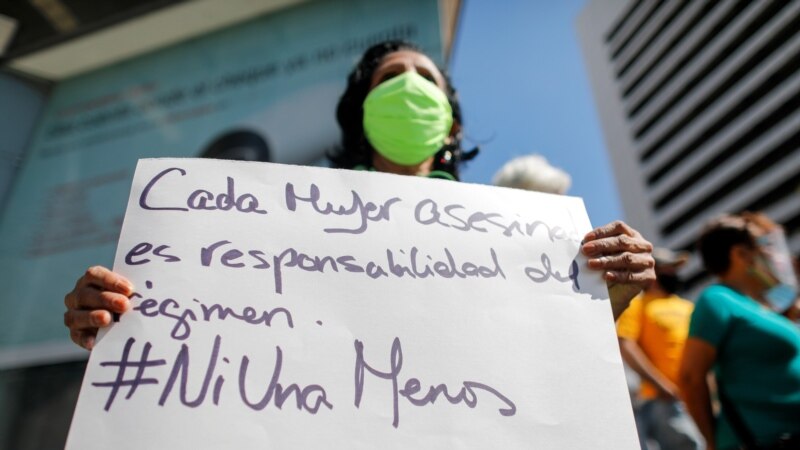 Cada Mujer asesina
es responsabilidad del
régimen.
#Ni Una Menos